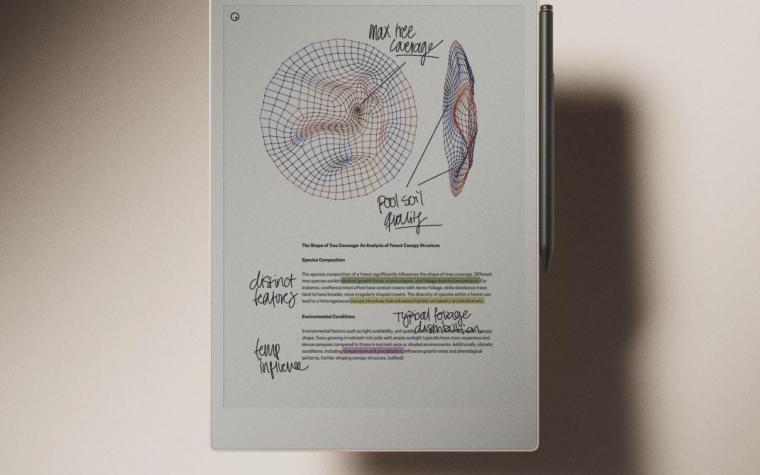 max tree
coverage
pool soil
quality
The Shape of Tree Coverage: An Analysis of Forest Canopy Structure
Species Composition
The species composition of a forest significantly influences the shape of tree coverage. Different
tree species exhibit distinct growth forms, crown shapes, and foliage distribution patterns. For
instance, coniferous trees often have conical crowns with dense foliage, while deciduous trees
tend to have broader, more irregularly shaped crowns. The diversity of species within a forest can
lead to a heterogeneous canopy structure that enhances habitat complexity and biodiversity.
distinct
features
Environmental Conditions
Typical foliage
distribution
Environmental factors such as light availability, soil quality canopy
shape. Trees growing in nutrient-rich soils with ample sunlight typically have more expansive and
dense canopies compared to those in nutrient-poor or shaded environments. Additionally, climatic
conditions, including temperature and precipitation, influence growth rates and phenological
patterns, further shaping canopy structure. (edited)
temp
influence